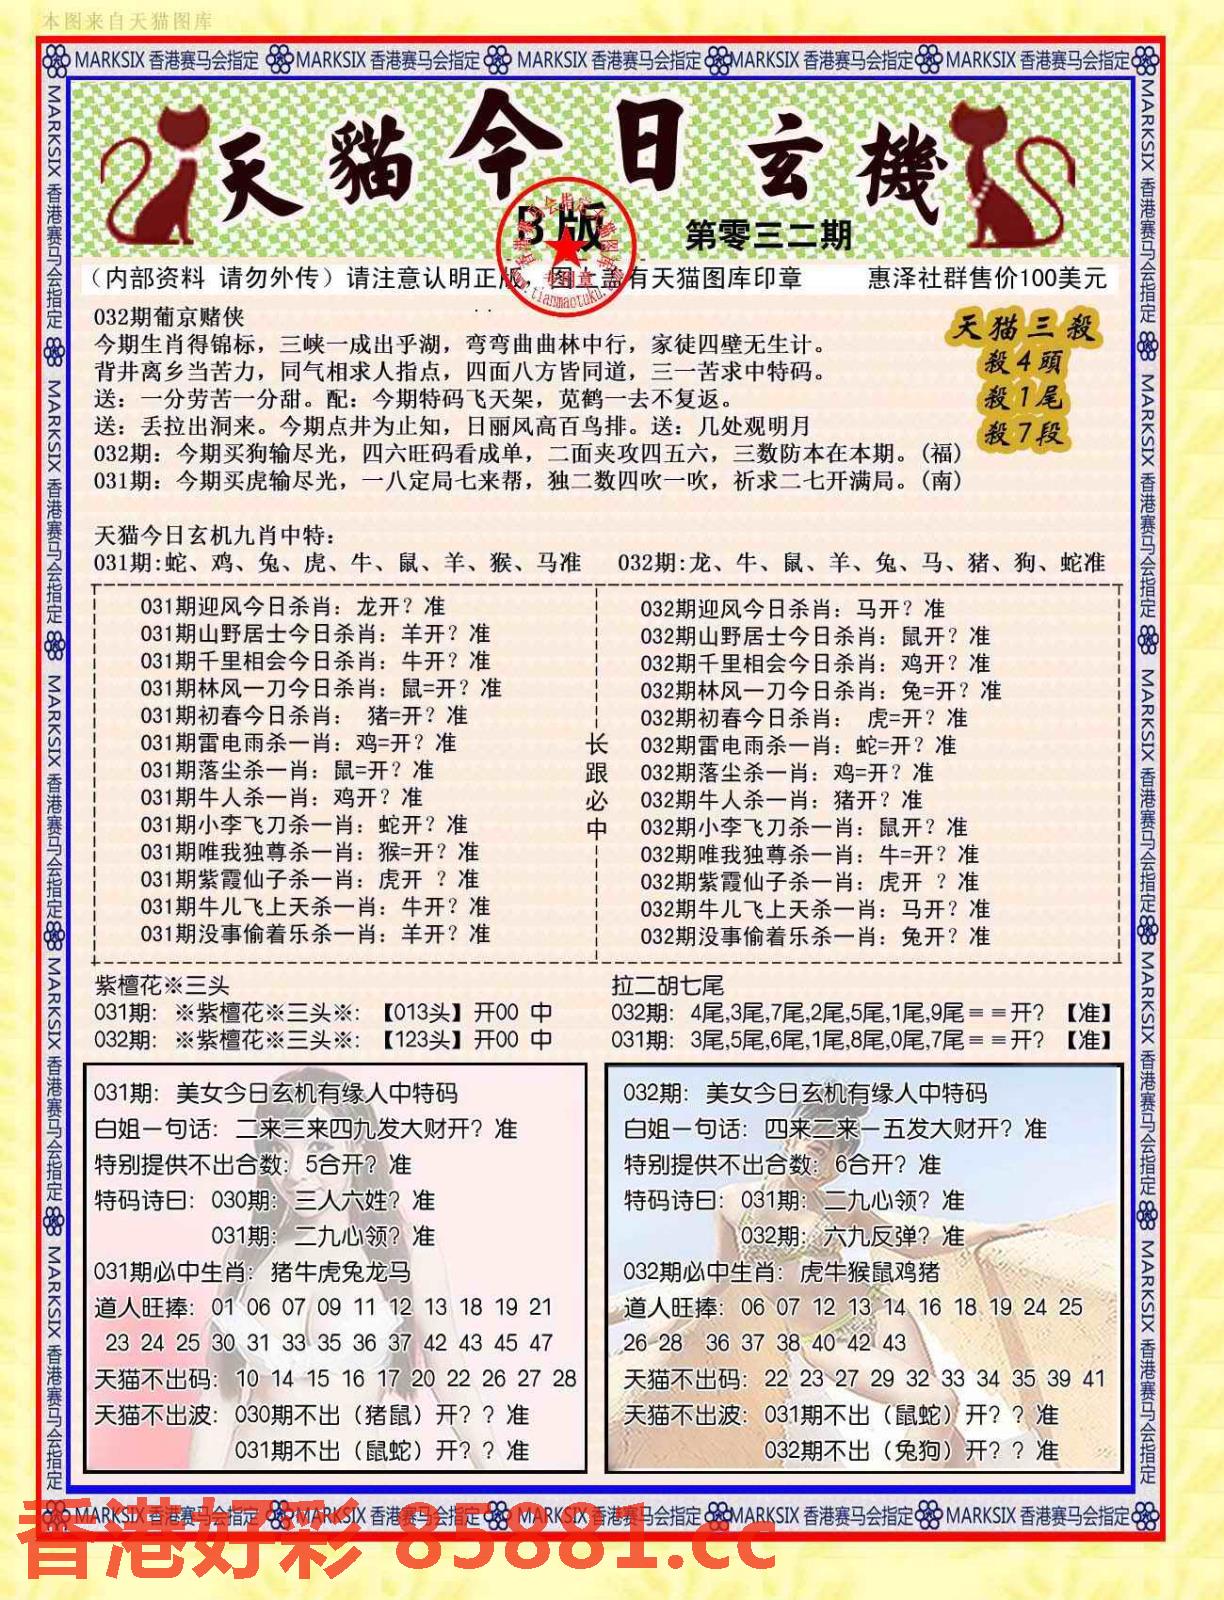 本图来自天猫图库
MARKSIX 香港赛马会指定 MARKSIX 香港赛马会指定 MARKSIX 香港赛马会指定 MARKSIX 香港赛马会指定 MARKSIX 香港赛马会指定
天貓今日玄機
B版
第零三二期
（内部资料 请勿外传）请注意认明正版 图上盖有天猫图库印章 惠泽社群售价100美元
032期葡京赌侠
今期生肖得锦标，三峡一成出乎湖，弯弯曲曲林中行，家徒四壁无生计。
背井离乡当苦力，同气相求人指点，四面八方皆同道，三一苦求中特码。
送：一分劳苦一分甜。配：今期特码飞天架，苋鹤一去不复返。
送：丢拉出洞来。今期点井为止知，日丽风高百鸟排。送：几处观明月
032期：今期买狗输尽光，四六旺码看成单，二面夹攻四五六，三数防本在本期。(福)
031期：今期买虎输尽光，一八定局七来帮，独二数四吹一吹，祈求二七开满局。(南)
天猫三殺
殺4頭
殺1尾
殺7段
天猫今日玄机九肖中特：
031期:蛇、鸡、兔、虎、牛、鼠、羊、猴、马准
032期:龙、牛、鼠、羊、兔、马、猪、狗、蛇准
031期迎风今日杀肖：龙开？准
031期山野居士今日杀肖：羊开？准
031期千里相会今日杀肖：牛开？准
031期林风一刀今日杀肖：鼠=开？准
031期初春今日杀肖： 猪=开？准
031期雷电雨杀一肖：鸡=开？准
031期落尘杀一肖：鼠=开？准
031期牛人杀一肖：鸡开？准
031期小李飞刀杀一肖：蛇开？准
031期唯我独尊杀一肖：猴=开？准
031期紫霞仙子杀一肖：虎开 ？准
031期牛儿飞上天杀一肖：牛开？准
031期没事偷着乐杀一肖：羊开？准
长跟必中
032期迎风今日杀肖：马开？准
032期山野居士今日杀肖：鼠开？准
032期千里相会今日杀肖：鸡开？准
032期林风一刀今日杀肖：兔=开？准
032期初春今日杀肖： 虎=开？准
032期雷电雨杀一肖：蛇=开？准
032期落尘杀一肖：鸡=开？准
032期牛人杀一肖：猪开？准
032期小李飞刀杀一肖：鼠开？准
032期唯我独尊杀一肖：牛=开？准
032期紫霞仙子杀一肖：虎开 ？准
032期牛儿飞上天杀一肖：马开？准
032期没事偷着乐杀一肖：兔开？准
紫檀花※三头
031期：※紫檀花※三头※：【013头】开00 中
032期：※紫檀花※三头※：【123头】开00 中
拉二胡七尾
032期：4尾,3尾,7尾,2尾,5尾,1尾,9尾＝＝开？【准】
031期：3尾,5尾,6尾,1尾,8尾,0尾,7尾＝＝开？【准】
031期：美女今日玄机有缘人中特码
白姐一句话：二来三来四九发大财开？准
特别提供不出合数：5合开？准
特码诗曰：030期：三人六姓？准
031期：二九心领？准
031期必中生肖：猪牛虎兔龙马
道人旺捧：01 06 07 09 11 12 13 18 19 21
23 24 25 30 31 33 35 36 37 42 43 45 47
天猫不出码：10 14 15 16 17 20 22 26 27 28
天猫不出波：030期不出（猪鼠）开？？准
031期不出（鼠蛇）开？？准
032期：美女今日玄机有缘人中特码
白姐一句话：四来二来一五发大财开？准
特别提供不出合数：6合开？准
特码诗曰：031期：二九心领？准
032期：六九反弹？准
032期必中生肖：虎牛猴鼠鸡猪
道人旺捧：06 07 12 13 14 16 18 19 24 25
26 28 36 37 38 40 42 43
天猫不出码：22 23 27 29 32 33 34 35 39 41
天猫不出波：031期不出（鼠蛇）开？？准
032期不出（兔狗）开？？准
MARKSIX 香港赛马会指定 MARKSIX 香港赛马会指定 MARKSIX 香港赛马会指定 MARKSIX 香港赛马会指定 MARKSIX 香港赛马会指定
香港好彩 85881.cc